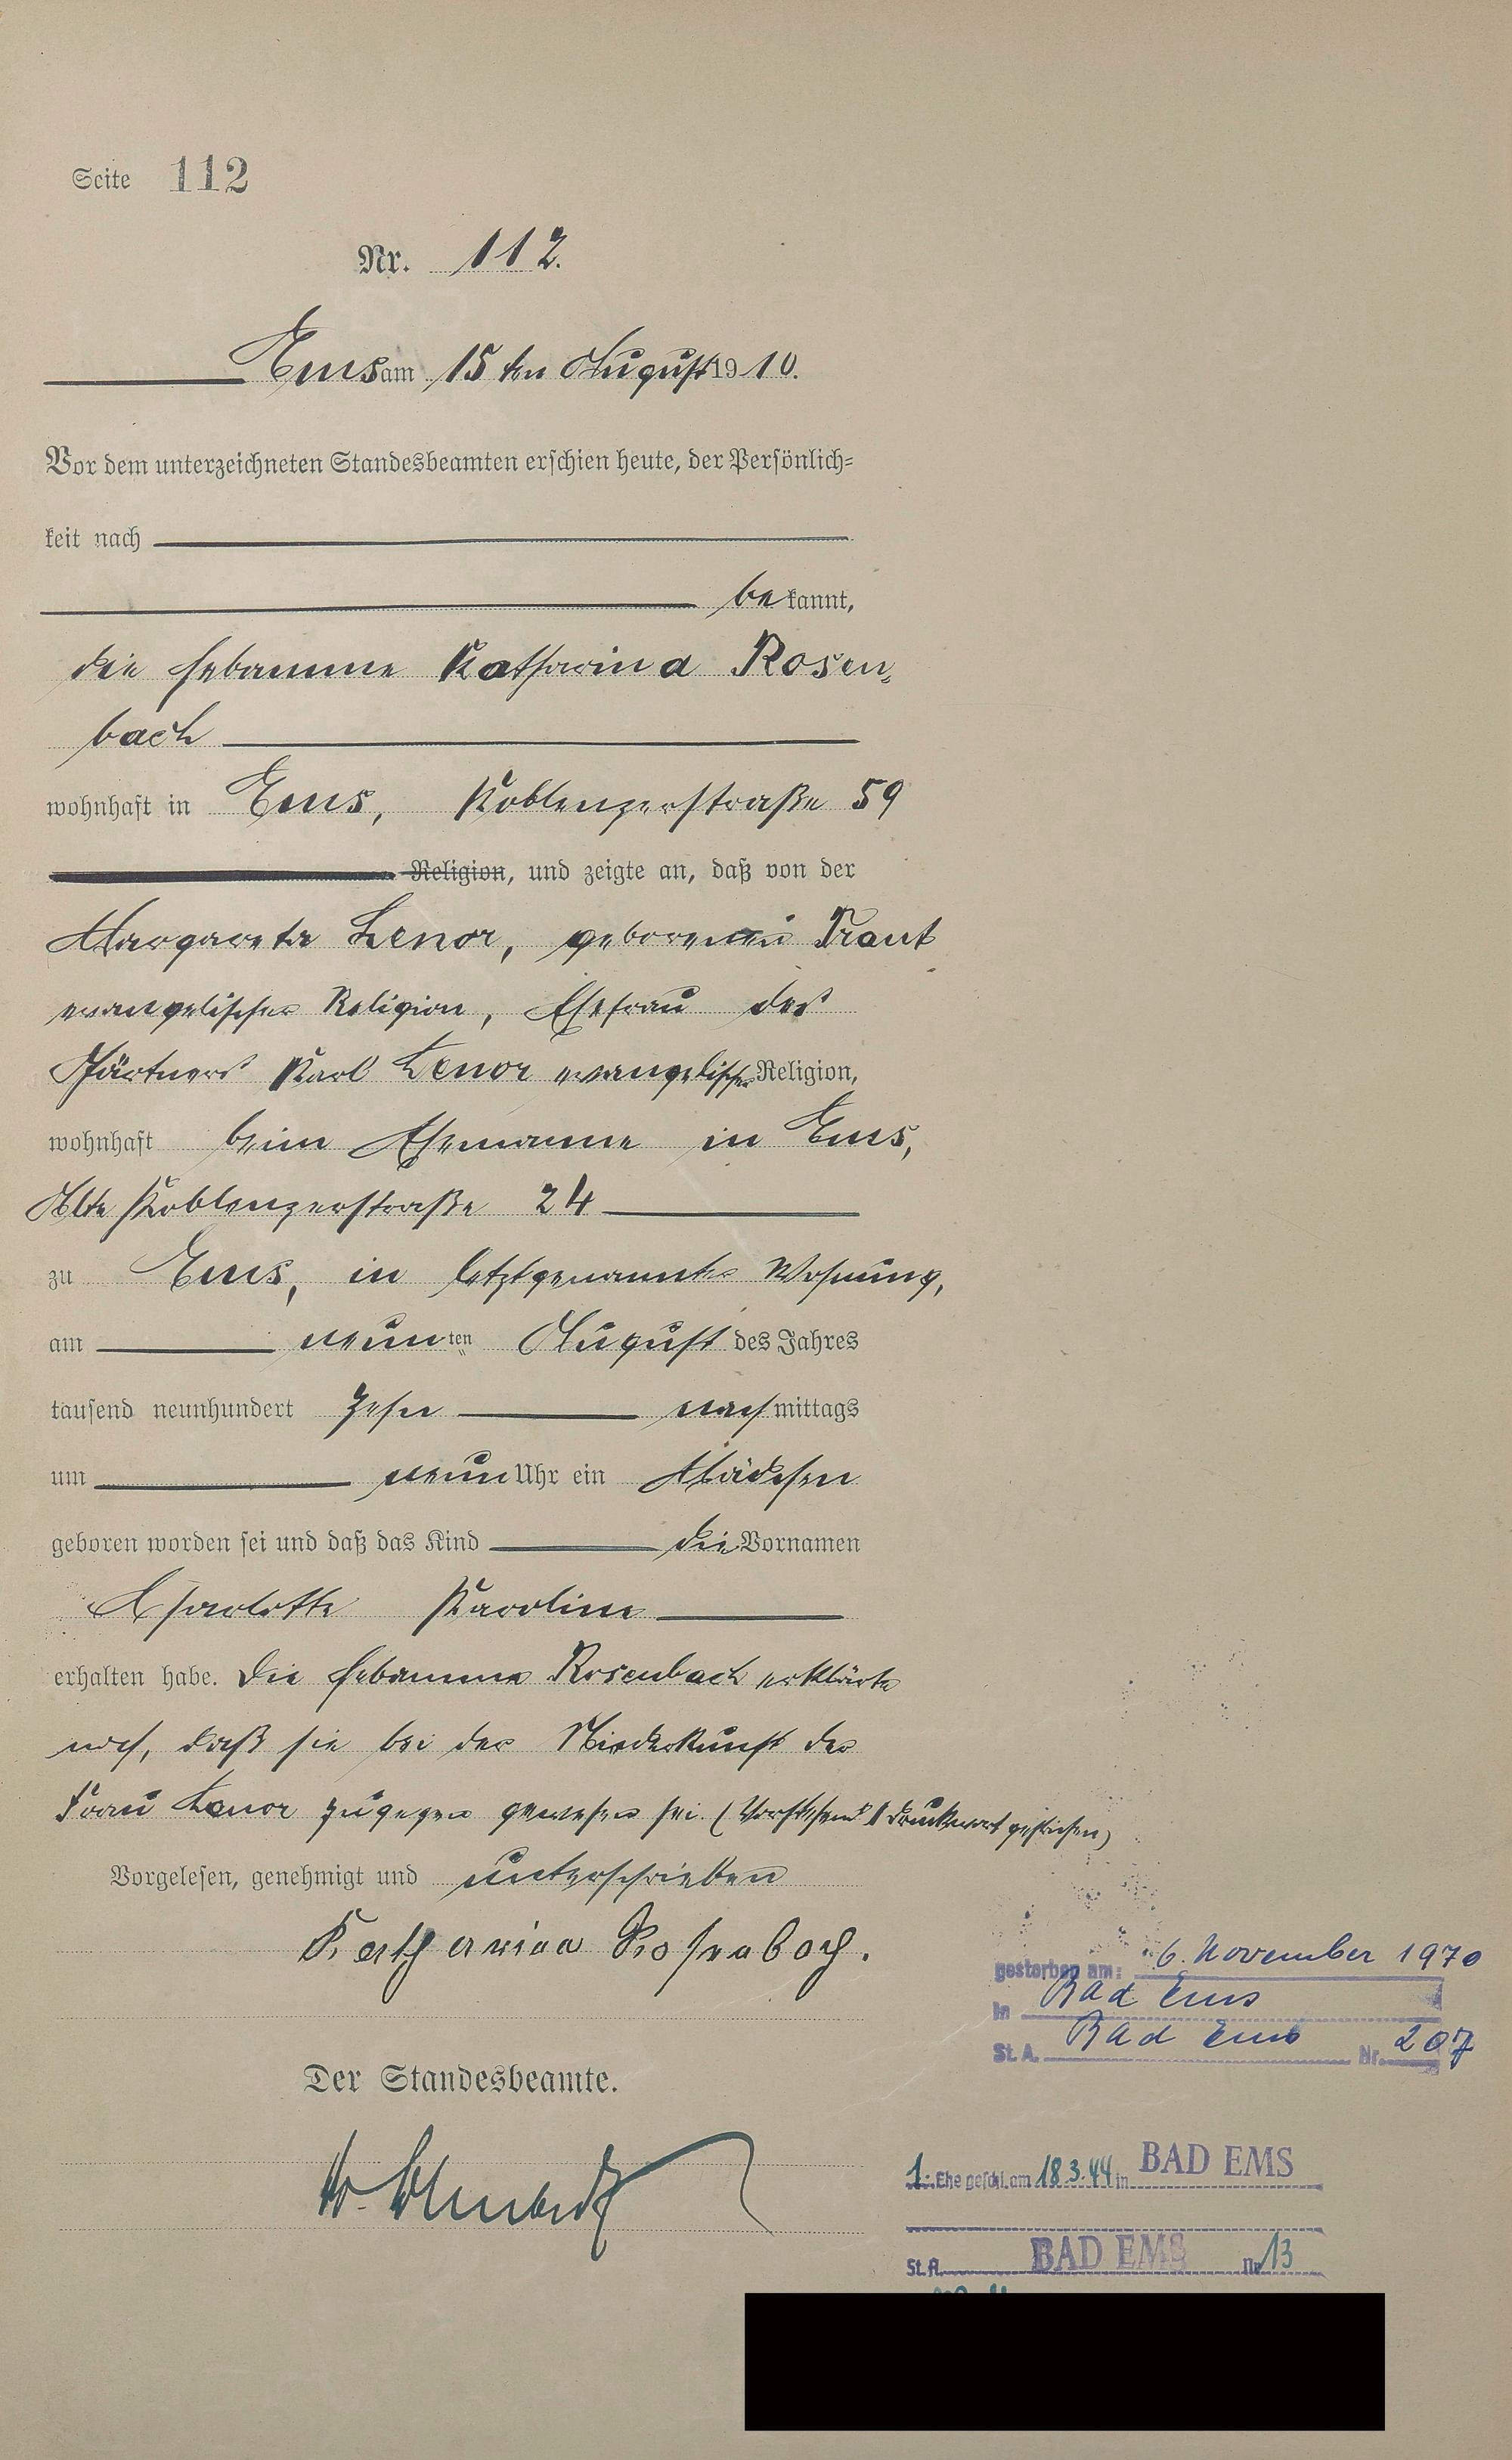 Seite 112
Nr. 112.
Ems am 15ten August 1910.
Vor dem unterzeichneten Standesbeamten erschien heute, der Persönlich=
keit nach
bekannt,
die Hebamme Katharina Rosen=
bach
wohnhaft in Ems, Koblenzerstraße 59
Religion, und zeigte an, daß von der
Margareta Lenor, geborenen Traut
evangelischer Religion, Ehefrau des
Gärtners Karl Lenor evangelischer Religion,
wohnhaft beim Ehemanne in Ems,
Alte Koblenzerstraße 24
zu Ems, in letztgenannter Wohnung,
am neunten August des Jahres
tausend neunhundert zehn nachmittags
um neun Uhr ein Mädchen
geboren worden sei und daß das Kind die Vornamen
Charlotte Karoline
erhalten habe. Die Hebamme Rosenbach erklärte
noch, daß sie bei der Niederkunft der
Frau Lenor zugegen gewesen sei. (Vorstehend 1 Druckwort gestrichen)
Vorgelesen, genehmigt und unterschrieben
Katharina Rosenbach.
Der Standesbeamte.
gestorben am: 6. November 1970
in Bad Ems
St. A. Bad Ems Nr. 207
1. Ehe geschl. am 18.3.44 in BAD EMS
St. A. BAD EMS Nr. 13